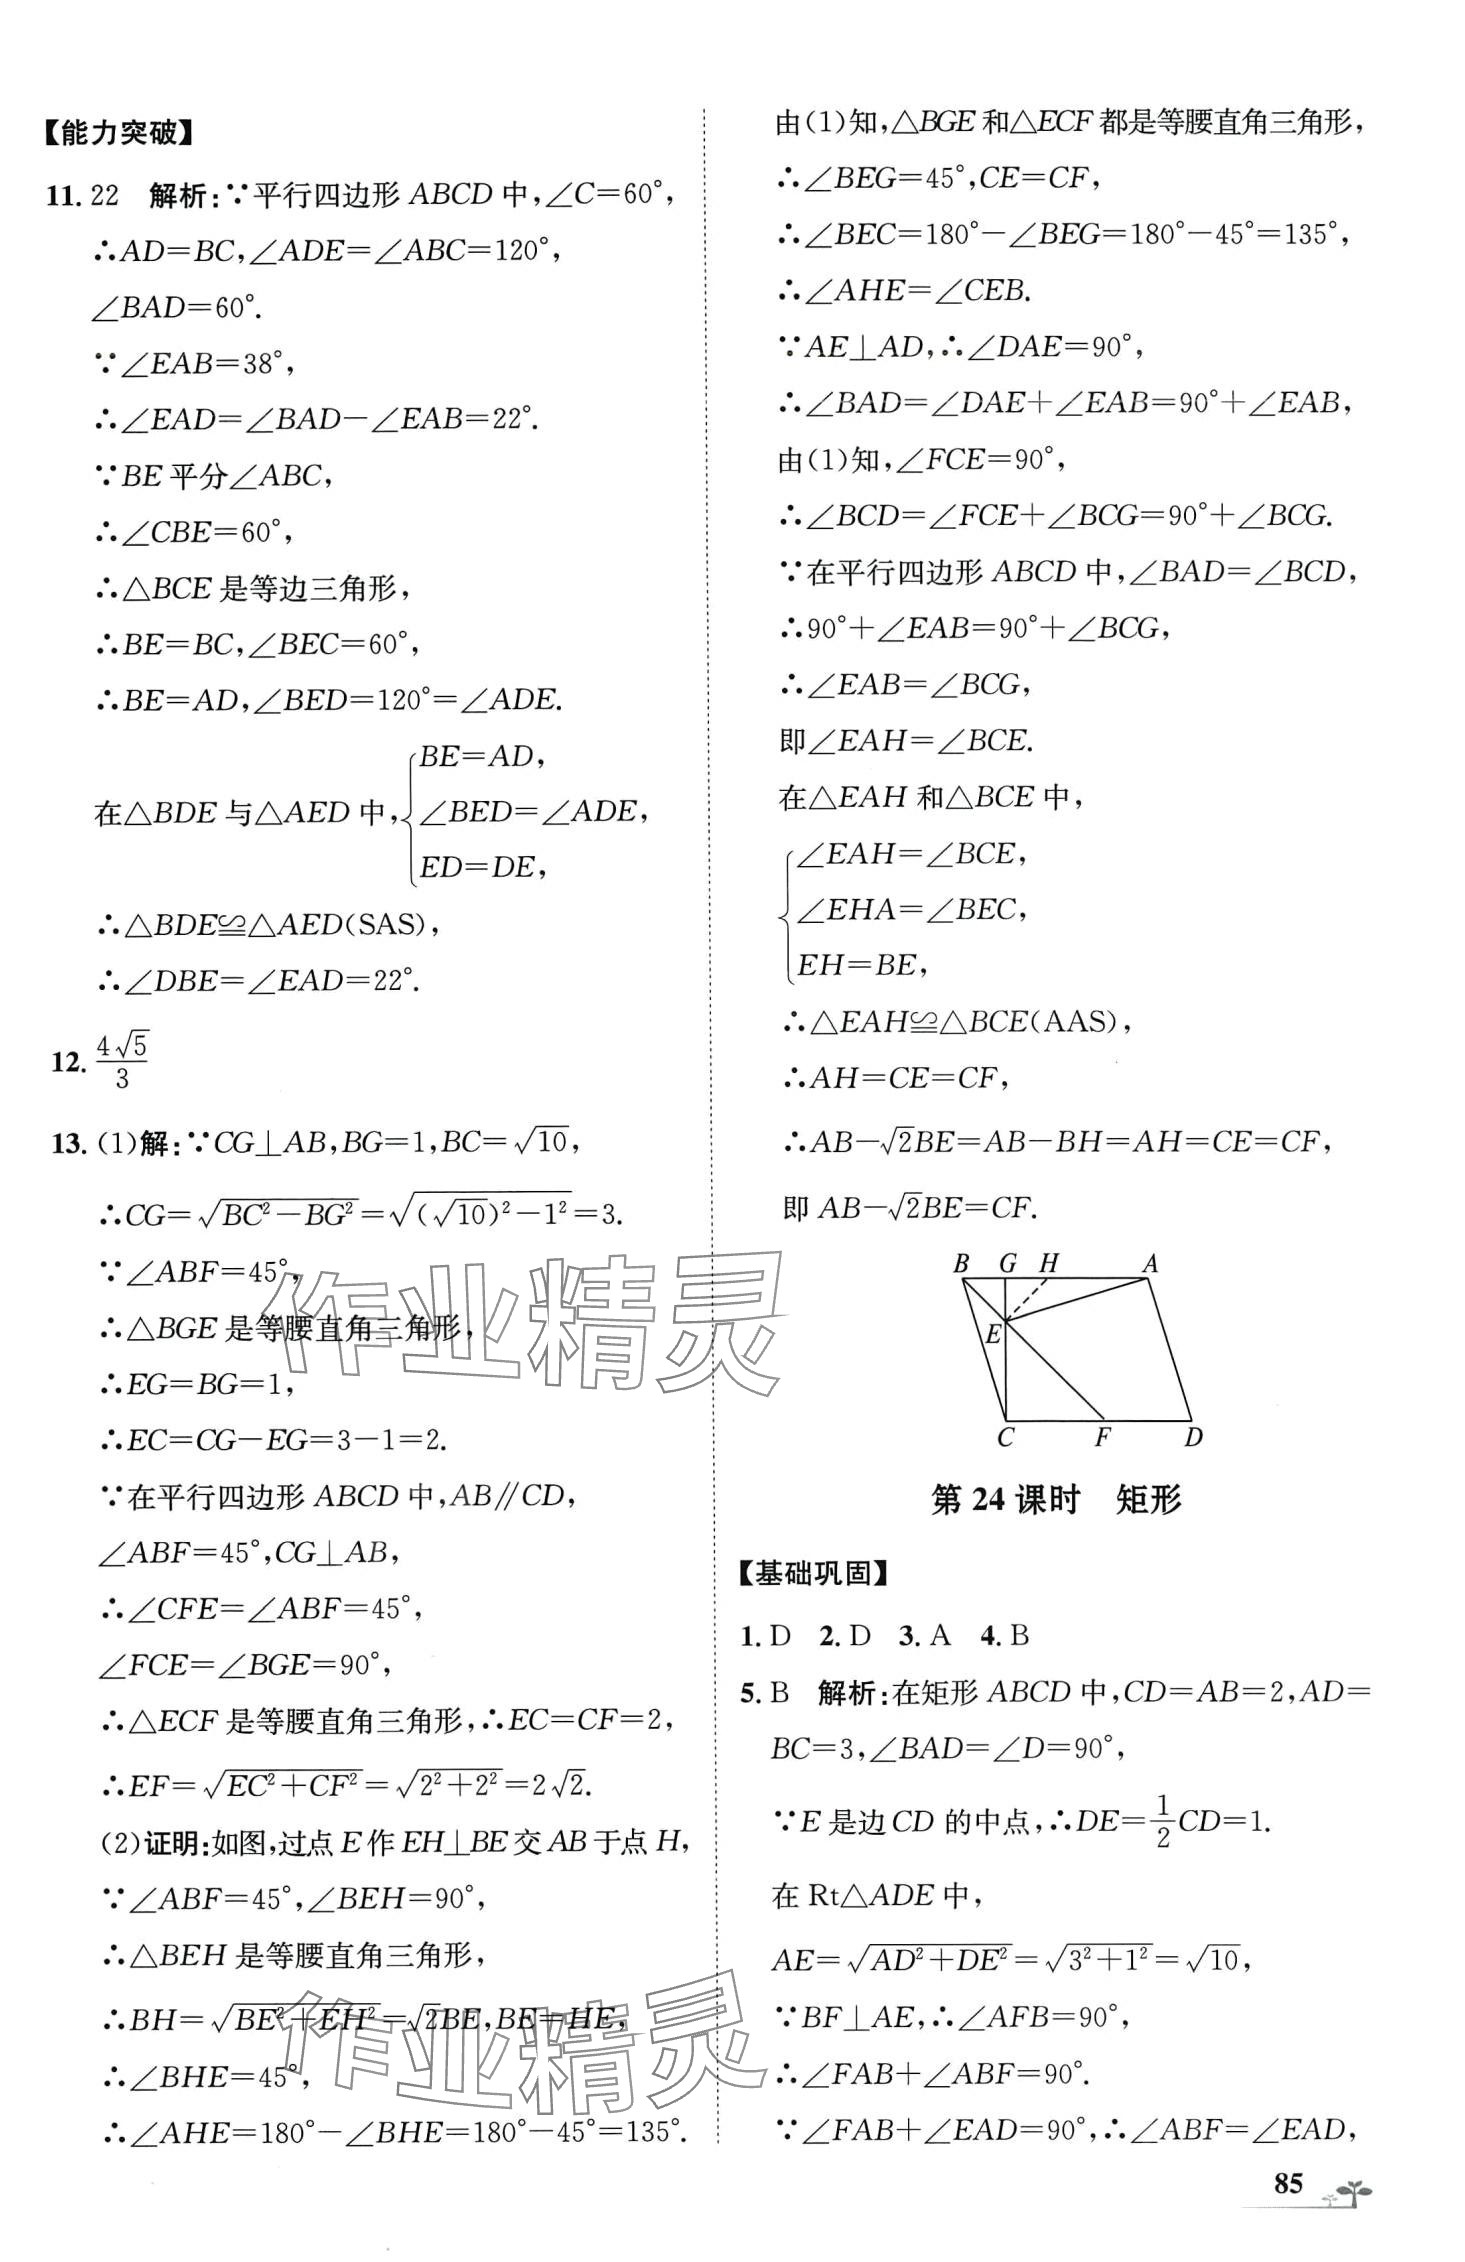 【能力突破】
11. 22 解析:∵平行四边形 ABCD 中,∠C=60°,
∴AD=BC,∠ADE=∠ABC=120°,
∠BAD=60°.
∵∠EAB=38°,
∴∠EAD=∠BAD−∠EAB=22°.
∵BE 平分∠ABC,
∴∠CBE=60°,
∴△BCE 是等边三角形,
∴BE=BC,∠BEC=60°,
∴BE=AD,∠BED=120°=∠ADE.
在△BDE 与△AED 中,{BE=AD,
∠BED=∠ADE,
ED=DE,
∴△BDE≌△AED(SAS),
∴∠DBE=∠EAD=22°.
12. 4√5/3
13. (1)解:∵CG⊥AB,BG=1,BC=√10,
∴CG=√(BC²−BG²)=√((√10)²−1²)=3.
∵∠ABF=45°,
∴△BGE 是等腰直角三角形,
∴EG=BG=1,
∴EC=CG−EG=3−1=2.
∵在平行四边形 ABCD 中,AB∥CD,
∠ABF=45°,CG⊥AB,
∴∠CFE=∠ABF=45°,
∠FCE=∠BGE=90°,
∴△ECF 是等腰直角三角形,∴EC=CF=2,
∴EF=√(EC²+CF²)=√(2²+2²)=2√2.
(2)证明:如图,过点 E 作 EH⊥BE 交 AB 于点 H,
∵∠ABF=45°,∠BEH=90°,
∴△BEH 是等腰直角三角形,
∴BH=√(BE²+EH²)=√2BE,BE=HE,
∴∠BHE=45°,
∴∠AHE=180°−∠BHE=180°−45°=135°.
由(1)知,△BGE 和△ECF 都是等腰直角三角形,
∴∠BEG=45°,CE=CF,
∴∠BEC=180°−∠BEG=180°−45°=135°,
∴∠AHE=∠CEB.
∵AE⊥AD,∴∠DAE=90°,
∴∠BAD=∠DAE+∠EAB=90°+∠EAB,
由(1)知,∠FCE=90°,
∴∠BCD=∠FCE+∠BCG=90°+∠BCG.
∵在平行四边形 ABCD 中,∠BAD=∠BCD,
∴90°+∠EAB=90°+∠BCG,
∴∠EAB=∠BCG,
即∠EAH=∠BCE.
在△EAH 和△BCE 中,
{∠EAH=∠BCE,
∠EHA=∠BEC,
EH=BE,
∴△EAH≌△BCE(AAS),
∴AH=CE=CF,
∴AB−√2BE=AB−BH=AH=CE=CF,
即 AB−√2BE=CF.
B G H A
E
C F D
第 24 课时 矩形
【基础巩固】
1. D 2. D 3. A 4. B
5. B 解析:在矩形 ABCD 中,CD=AB=2,AD=
BC=3,∠BAD=∠D=90°,
∵E 是边 CD 的中点,∴DE=1/2CD=1.
在 Rt△ADE 中,
AE=√(AD²+DE²)=√(3²+1²)=√10,
∵BF⊥AE,∴∠AFB=90°,
∴∠FAB+∠ABF=90°.
∵∠FAB+∠EAD=90°,∴∠ABF=∠EAD,
85
作业精灵
作业精灵